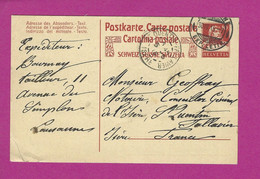 Postkarte. Carte postale
Cartolina postale
SCHWEIZ. SUISSE. SVIZZERA
Adresse des Absenders. - Text.
Adresse de l'expéditeur. - Texte.
Indirizzo del mittente. - Testo.
HELVETIA
Expéditeur:
Bournay
11
Avenue du
Simplon
Lausanne
Monsieur Geoffray
Notaire, Conseiller Général
de l'Isère, St
Isère
France